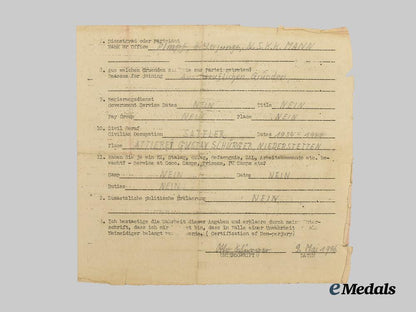 Dienstgrad oder Parteiamt
Rank or Office Pimpf, N.S.K.K. MANN
Aus welchen Gruenden zur Partei getreten?
Reasons for joining Aus beruflichen Gründen
9. Regierungsdienst
Government Service Dates NEIN Title NEIN
Pay Group NEIN Place NEIN
10. Zivil Beruf
Civilian Occupation SATTLER Dates
Place GUSTAV SCHÜRGER NIEDERSTETTEN
11. Haben Sie je ein KZ, Stalag, Oflag, Gefaengnis, ZAL, Arbeitskommando etc. be-
wacht? - Service at Conc. Camps, Prisons, PW Camps etc?
Camp NEIN Dates NEIN
Duties NEIN
Zusaetzliche politische Erklaerung NEIN
Ich bestaetige die Wahrheit dieser Angaben und erklaere durch meine Unter-
schrift, dass ich mir bin, dass im Falle einer Unwahrheit
Meineidiger belangt werde. ( Certification of Non-perjury)
Schürger 9. Mai 1946
UNTERSCHRIFT DATUM
eMedals